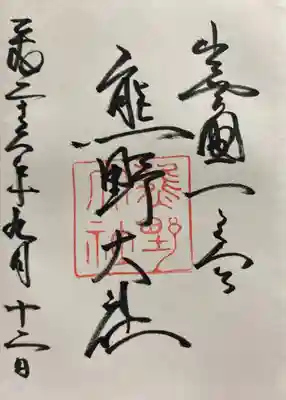 出雲國一之宮
熊野大社
熊野大社
平成二十六年九月十二日